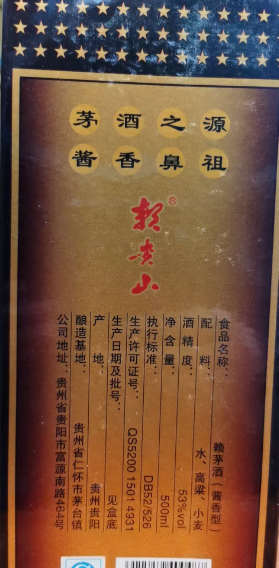 茅酒之源
酱香鼻祖
赖贵山®
食品名称：赖茅酒（酱香型）
配料：水、高粱、小麦
酒精度：53%vol
净含量：500ml
执行标准：DB52/526
生产许可证号：QS5200 1501 4931
生产日期及批号：见盒底
产地：贵州贵阳
酿造基地：贵州省仁怀市茅台镇
公司地址：贵州省贵阳市富源南路464号